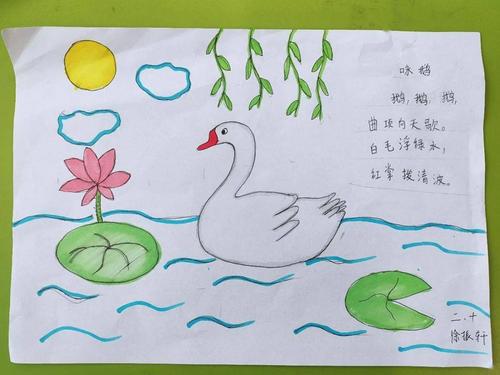 咏鹅
鹅，鹅，鹅，
曲项向天歌。
白毛浮绿水，
红掌拨清波。
二.十
徐振轩